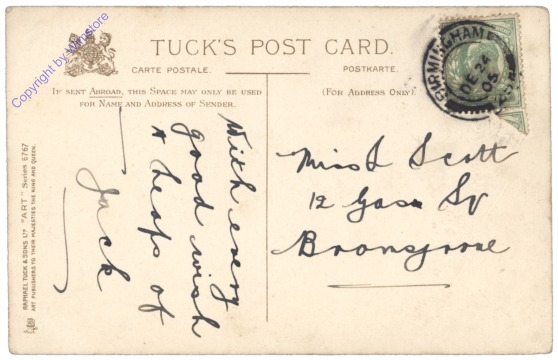 TUCK'S POST CARD.
CARTE POSTALE.
POSTKARTE.
IF SENT ABROAD, THIS SPACE MAY ONLY BE USED
FOR NAME AND ADDRESS OF SENDER.
(FOR ADDRESS ONLY).
BIRMINGHAM
DE 24
05
With every
good wish
& heaps of
Jack
Miss Scott
12
Bromsgrove
RAPHAEL TUCK & SONS LTD "ART" Series 6767
ART PUBLISHERS TO THEIR MAJESTIES THE KING AND QUEEN.
Copyright by Winstore